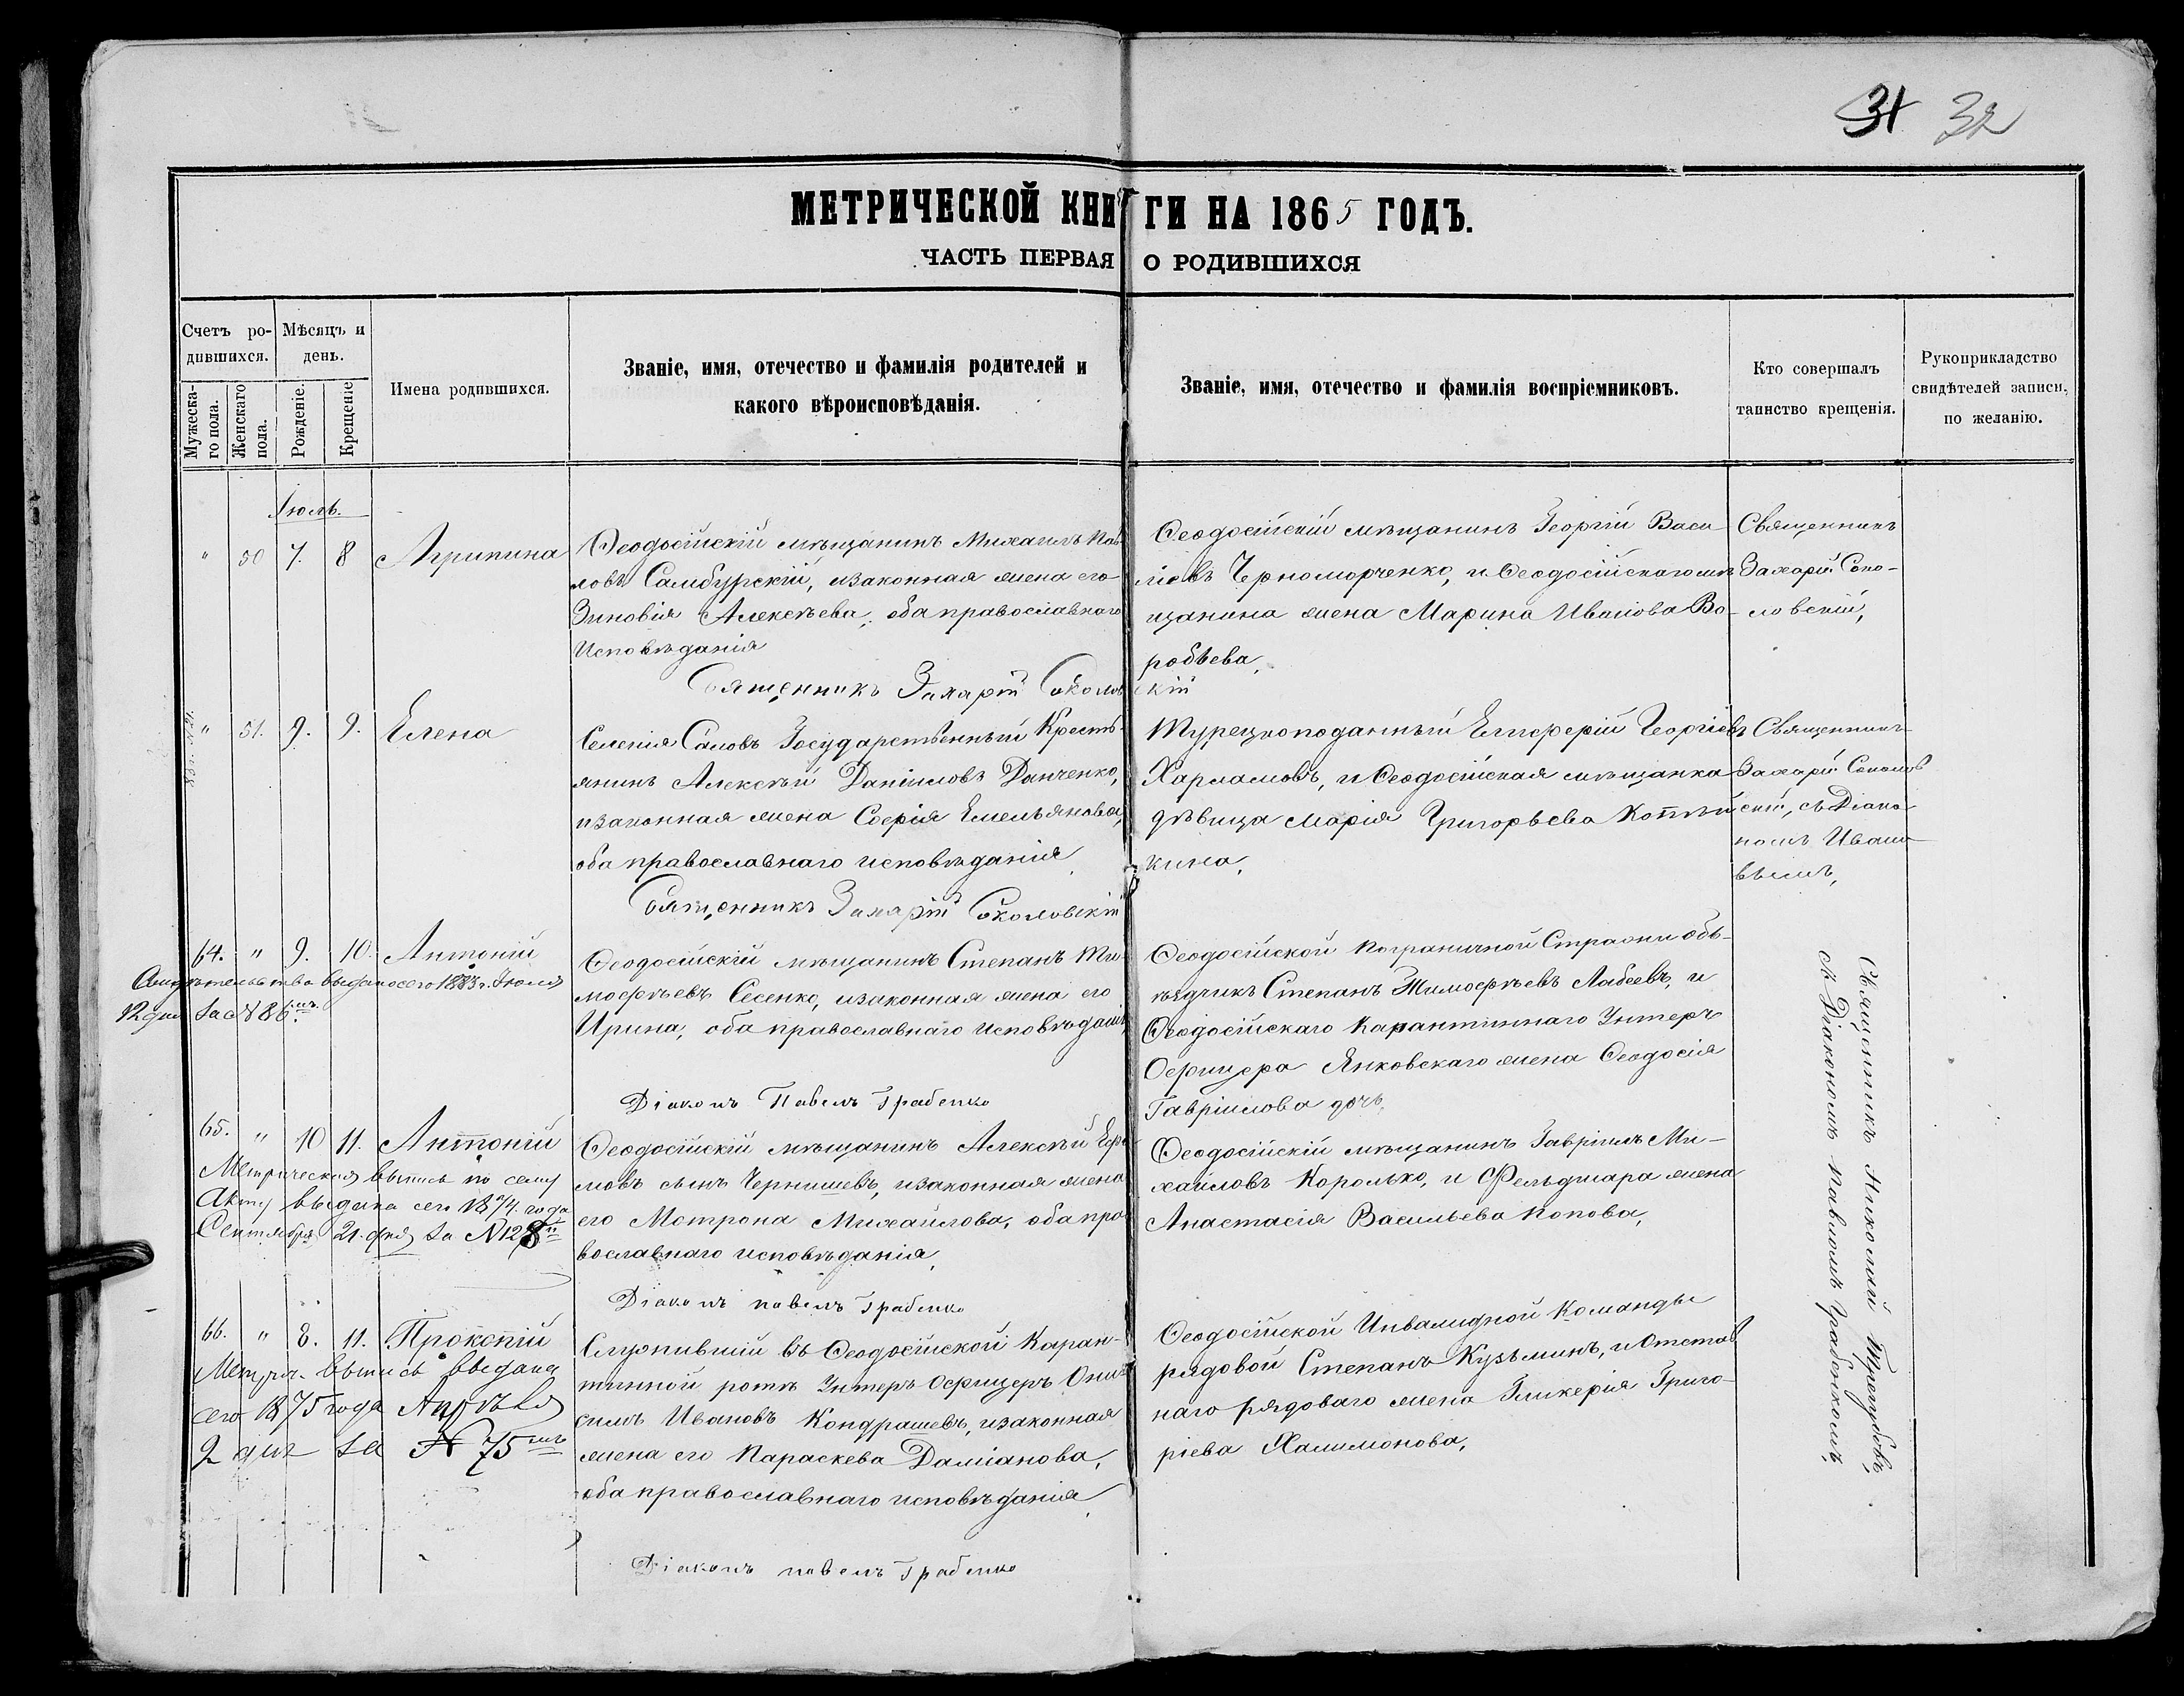 31 32
МЕТРИЧЕСКОЙ КНИГИ НА 1865 ГОДЪ.
ЧАСТЬ ПЕРВАЯ О РОДИВШИХСЯ
Счетъ ро-
дившихся.
Мѣсяцъ и
день.
Мужеска-
го пола.
Женскаго
пола.
Рожденіе.
Крещеніе
Имена родившихся.
Званіе, имя, отечество и фамилія родителей и
какого вѣроисповѣданія.
Званіе, имя, отечество и фамилія воспріемниковъ.
Кто совершалъ
таинство крещенія.
Рукоприкладство
свидѣтелей записи,
по желанію.
Іюль.
" 50 7. 8 Агрипина
Ѳеодосійскій мѣщанинъ Михаилъ Пав
ловъ Самбурскій, изаконная жена его
Зиновія Алексѣева, оба православнаго
Исповѣданія
Священникъ Захарій Соколовскій
Ѳеодосійскій мѣщанинъ Георгій Васи-
ліевъ Черноморченко, и Ѳеодосійскаго мѣ
щанина жена Марина Иванова Во-
робьева,
Священникъ
Захарій Соко-
ловскій,
" 51. 9. 9. Елена
Селенія Саловъ Государственный Кресть-
янинъ Алексѣй Даніиловъ Данченко,
изаконная жена Софія Емельянова,
оба православнаго исповѣданія
Священникъ Захарій Соколовскій
Турецкоподанный Елисферій Георгіевъ
Харламовъ, и Ѳеодосійская мѣщанка
дѣвица Марія Григорьева
кина,
Священникъ
Захарій Соколов
скій, съ Діако-
номъ Ивано-
вымъ,
64. " 9. 10. Антоній
Свидѣтельство выдано сего 1883 г. Іюля
12 дня за № 86
Ѳеодосійскій мѣщанинъ Степанъ Ти-
мофѣевъ Сесенко, изаконная жена его
Ирина, оба православнаго исповѣданія
Діаконъ Павелъ Грабенко
Ѳеодосійской Пограничной Стражи объ-
ѣздчикъ Степанъ Тимофѣевъ Лабеевъ, и
Ѳеодосійскаго Карантиннаго Унтеръ
Офицера Янковскаго жена Ѳеодосія
Гавріилова дочь,
65. " 10 11. Антоній
Метрическая выпись по сему
Акту выдана сего 1874 года
Сентября 21 дня за № 128
Ѳеодосійскій мѣщанинъ Алексѣй Ефи
мовъ сынъ Чернишевъ, изаконная жена
его Мотрона Михайлова, оба пра
вославнаго исповѣданія,
Діаконъ павелъ Грабенко
Ѳеодосійскій мѣщанинъ Гавріилъ Ми-
хайловъ Королько, и Фельдшара жена
Анастасія Васильева Попова,
66. " 8. 11. Прокопій
Метрич. выпись выдана
сего 1875 года Апрѣля
2 дня за № 75
Служившій въ Ѳеодосійской Каран-
тинной ротѣ Унтеръ Офицеръ Они
симъ Ивановъ Кондрашевъ, изаконная
жена его Параскева Даміанова,
оба православнаго исповѣданія,
Діаконъ павелъ Грабенко
Ѳеодосійской Инвалидной Команды
рядовой Степанъ Кузьминъ, и Отстав
наго рядоваго жена Гликерія Григо-
ріева Халимонова,
Священникъ Николай
съ Діакономъ Павломъ Грабенкомъ